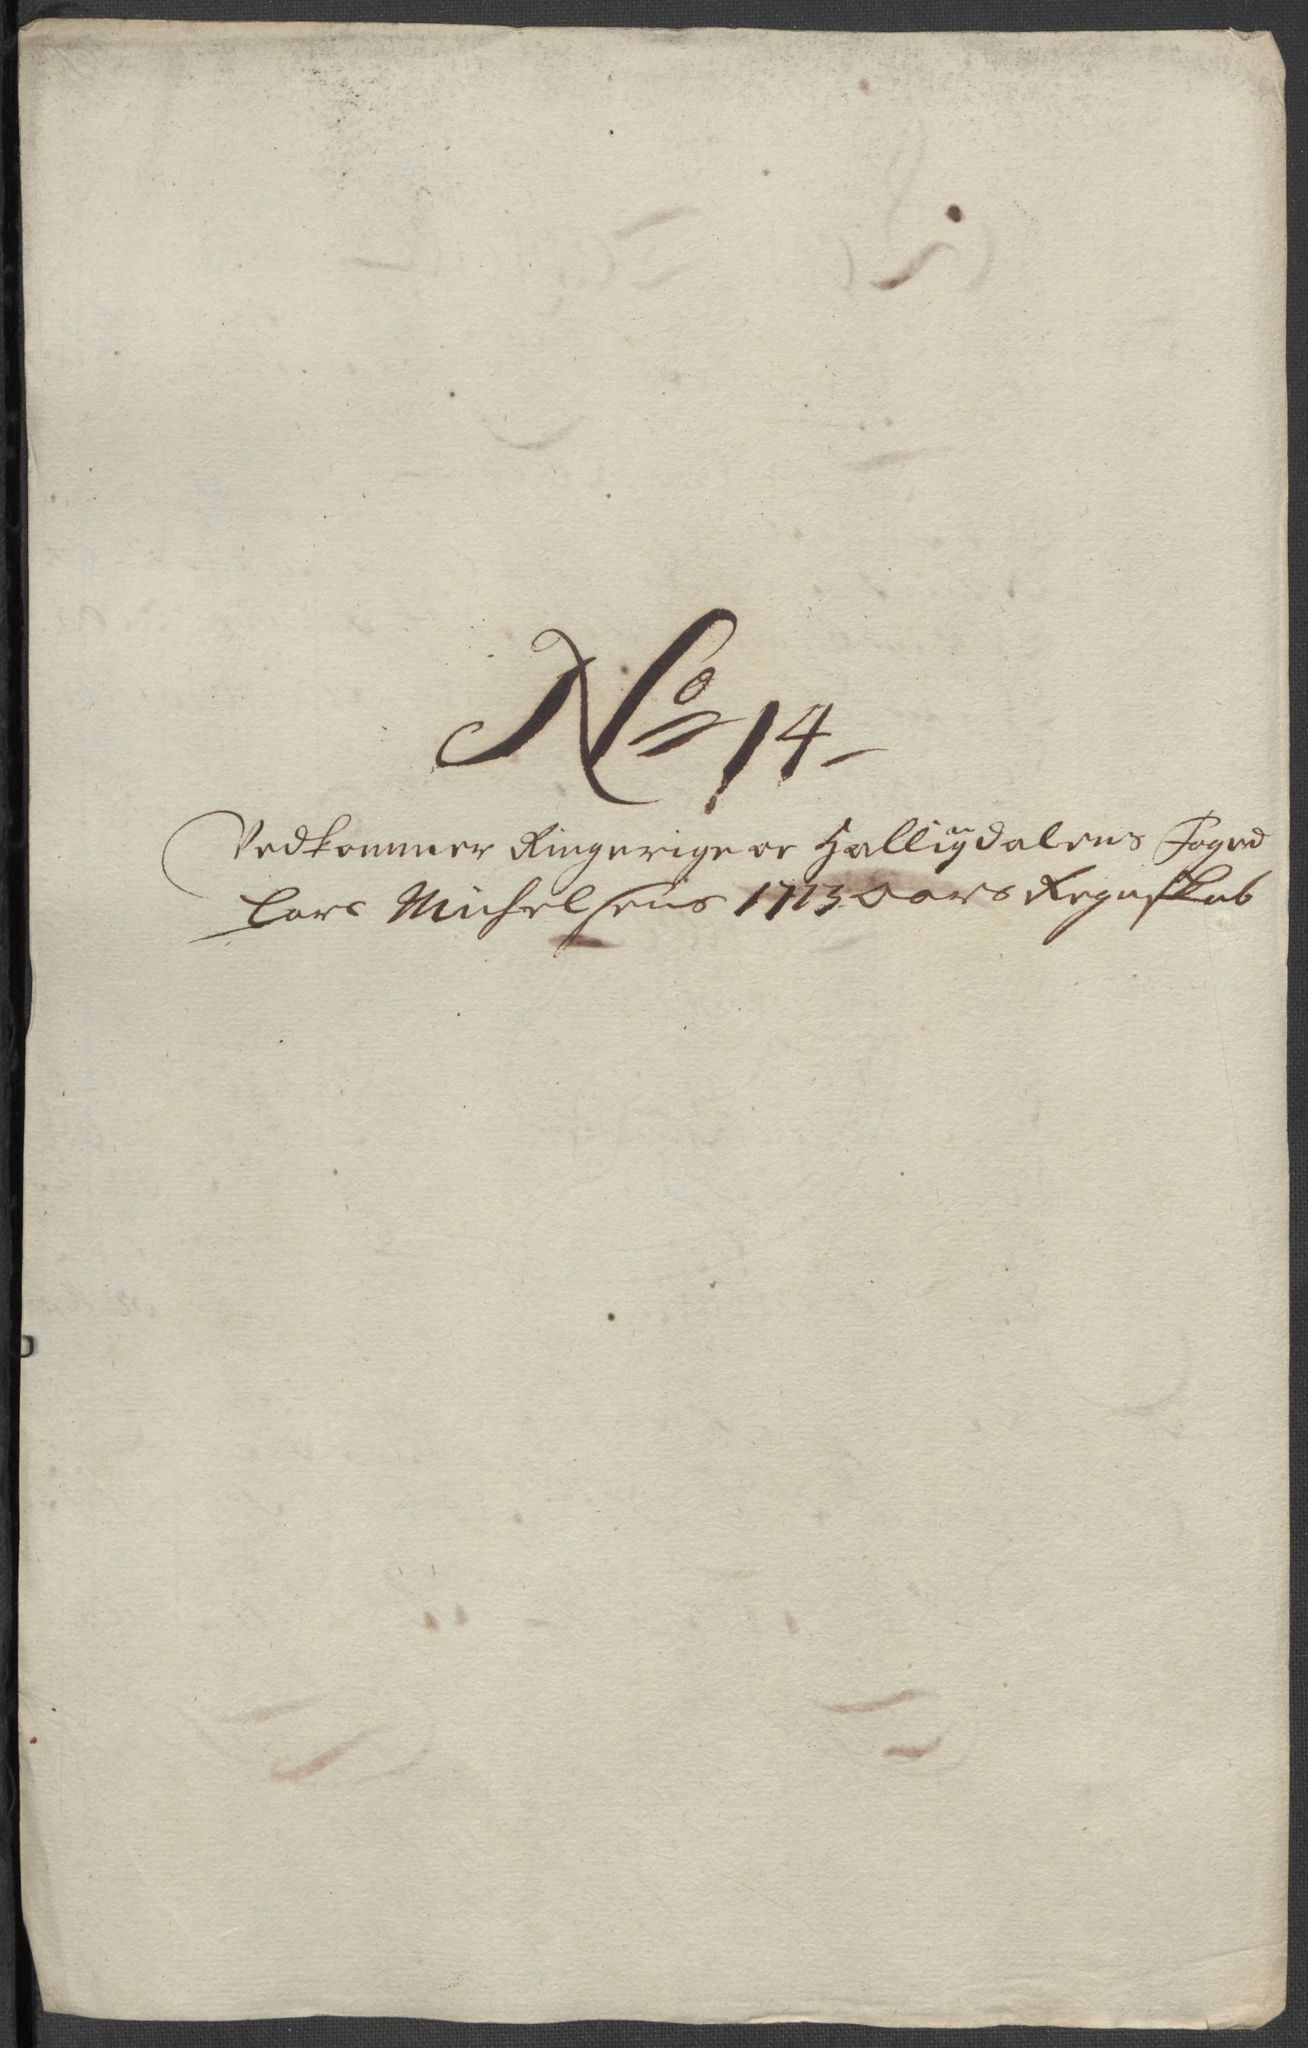 No 14
Vedkommer Ringerige oc Halligdalens Foged
Lars Michelsens 1713 Aars Regnskab